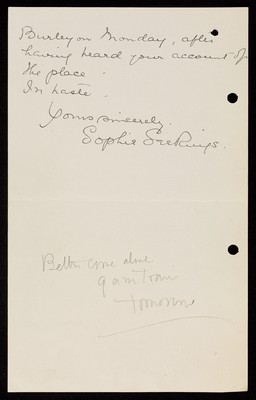 Burley on Monday, after
having heard your account of
the place.
In haste.
Yours sincerely.
Sophie
Better come alone
9 am Train
tomorrow